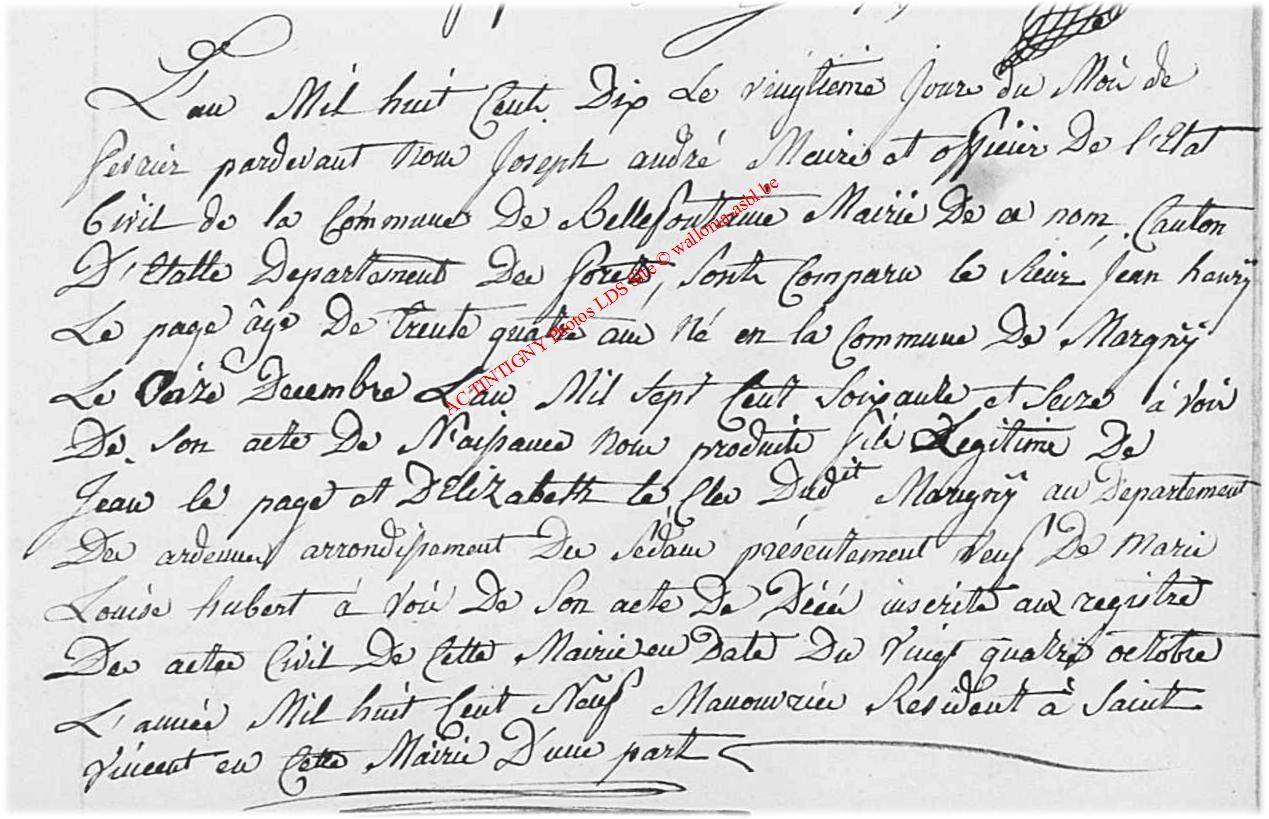 L'an Mil huit Cent Dix Le vingtieme Jour du Mois de
fevrier pardevant Nous Joseph andré Maire et officier De l'Etat
Civil de la Commune De Bellefontaine Mairie De ce nom, Canton
D'Etalle Departement Des forets, Sont Comparu le Sieur Jean henrÿ
Le page âgé De Trente quatre ans Né en la Commune De Margnÿ
Le Decembre L'an Mil Sept Cent Soixante et Seize à voir
De Son acte De Naissance nous produite fils Legitime De
Jean le page et D'Elizabeth le Cler Dudit Marignÿ au Departement
Des ardennes arrondissement De Sédan présentement Veuf De Marie
Louise hubert à voir De Son acte De Décés inscrite aux registre
Des actes Civil De Cette Mairie en Date Du Vingt quatre octobre
L'année Mil huit Cent Neuf Manouvrier Resident à Saint
Vincent en Cette Mairie D'une part
AC TINTIGNY Photos LDS site © wallonia-asbl.be